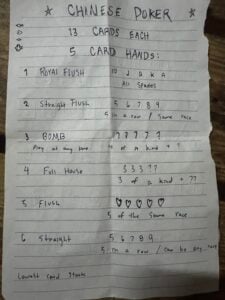 ★ CHINESE POKER ★
13 CARDS EACH
5 CARD HANDS:
1 ROYAL FLUSH 10 J Q K A
All Spades
2 Straight Flush 5 6 7 8 9
5 in a row / Same race
3 BOMB ? ? ? ? ?
Play at any time 4 of a kind + ?
4 Full House 3 3 3 ? ?
3 of a kind + ??
5 Flush ♡ ♡ ♡ ♡ ♡
5 of the same race
6 Straight 5 6 7 8 9
5 in a row / can be any race
Lowest card starts